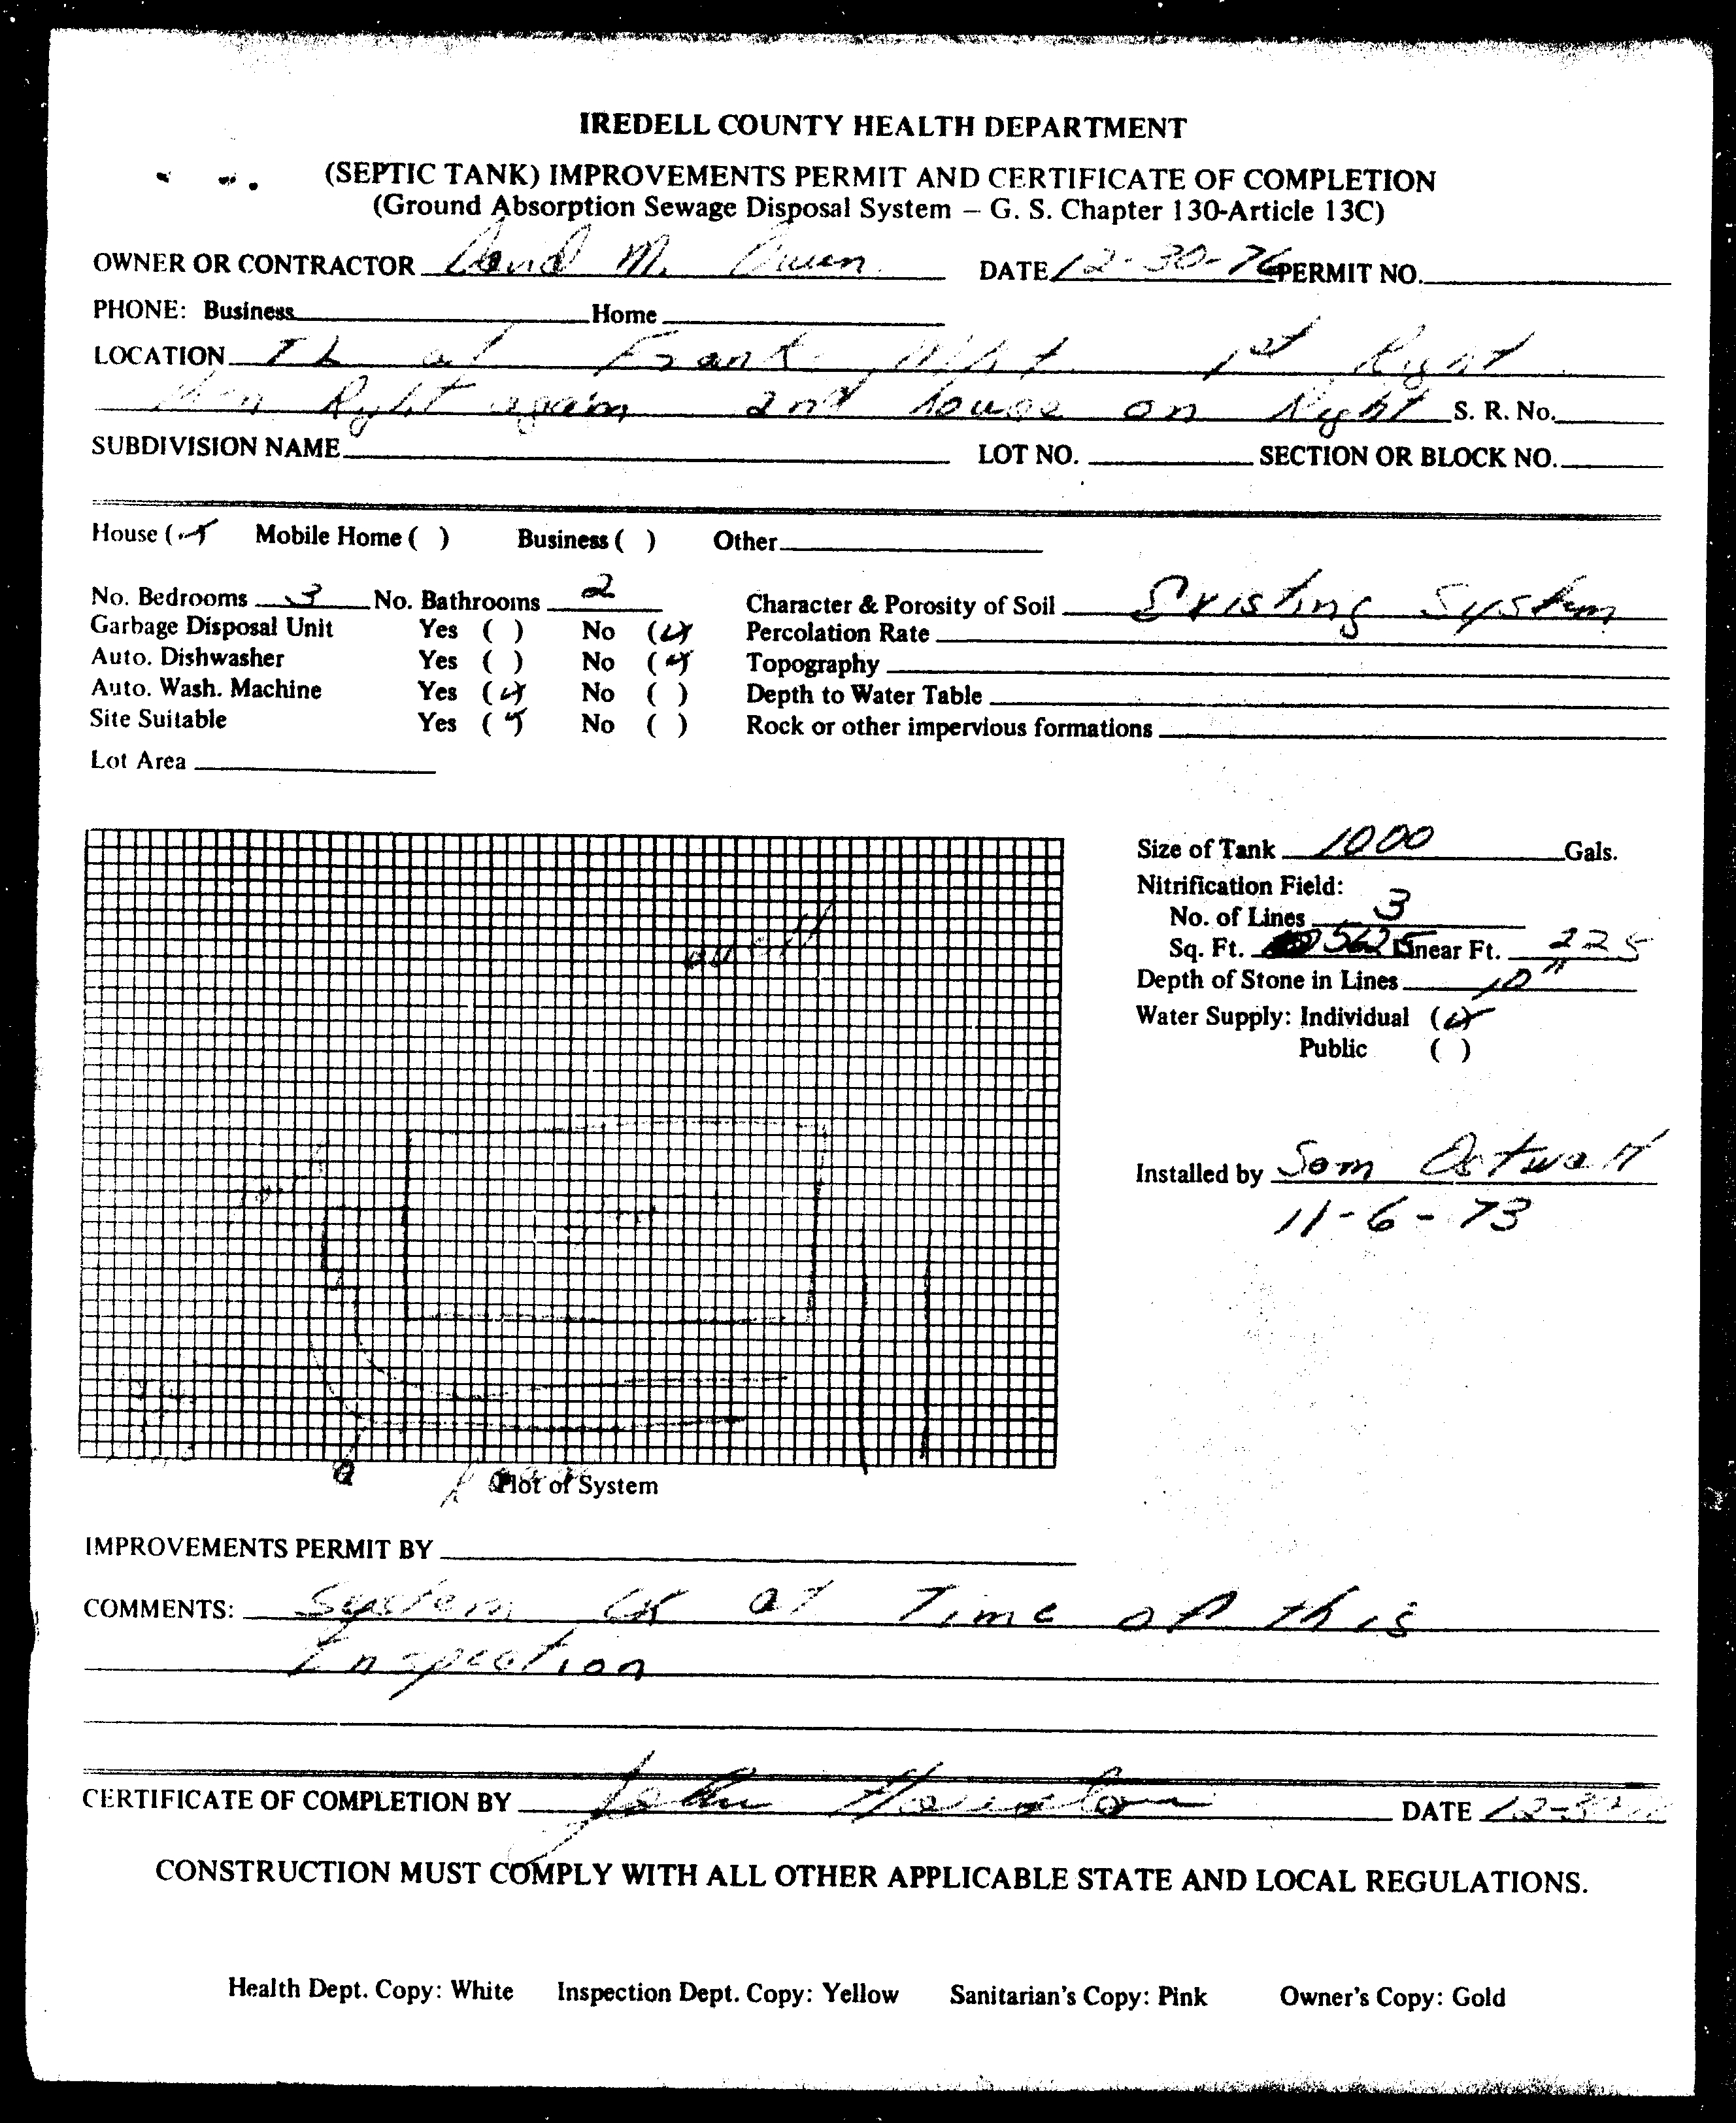 IREDELL COUNTY HEALTH DEPARTMENT
(SEPTIC TANK) IMPROVEMENTS PERMIT AND CERTIFICATE OF COMPLETION
(Ground Absorption Sewage Disposal System – G. S. Chapter 130-Article 13C)
OWNER OR CONTRACTOR David M. Owen DATE 12-30-76 PERMIT NO.
PHONE: Business Home
LOCATION TL at Frank 1st Right
then Right again 2nd house on Right S. R. No.
SUBDIVISION NAME LOT NO. SECTION OR BLOCK NO.
House ( ) Mobile Home ( ) Business ( ) Other
No. Bedrooms 3 No. Bathrooms 2 Character & Porosity of Soil Existing System
Garbage Disposal Unit Yes ( ) No ( ) Percolation Rate
Auto. Dishwasher Yes ( ) No ( ) Topography
Auto. Wash. Machine Yes ( ) No ( ) Depth to Water Table
Site Suitable Yes ( ) No ( ) Rock or other impervious formations
Lot Area
Size of Tank 1000 Gals.
Nitrification Field:
No. of Lines 3
Sq. Ft. 5625 Linear Ft. 225
Depth of Stone in Lines 10"
Water Supply: Individual ( )
Public ( )
Installed by Sam Ostwalt
11-6-73
Plot of System
IMPROVEMENTS PERMIT BY
COMMENTS: System OK at Time of this
Inspection
CERTIFICATE OF COMPLETION BY John DATE 12-30
CONSTRUCTION MUST COMPLY WITH ALL OTHER APPLICABLE STATE AND LOCAL REGULATIONS.
Health Dept. Copy: White Inspection Dept. Copy: Yellow Sanitarian's Copy: Pink Owner's Copy: Gold